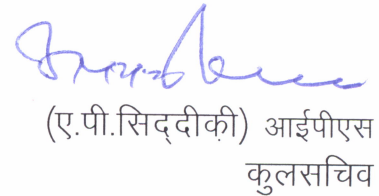 (ए.पी.सिद्दीकी़) आईपीएस
कुलसचिव